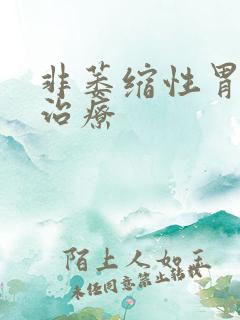 非萎缩性胃
治疗
陌上人如玉
未经同意禁止转载